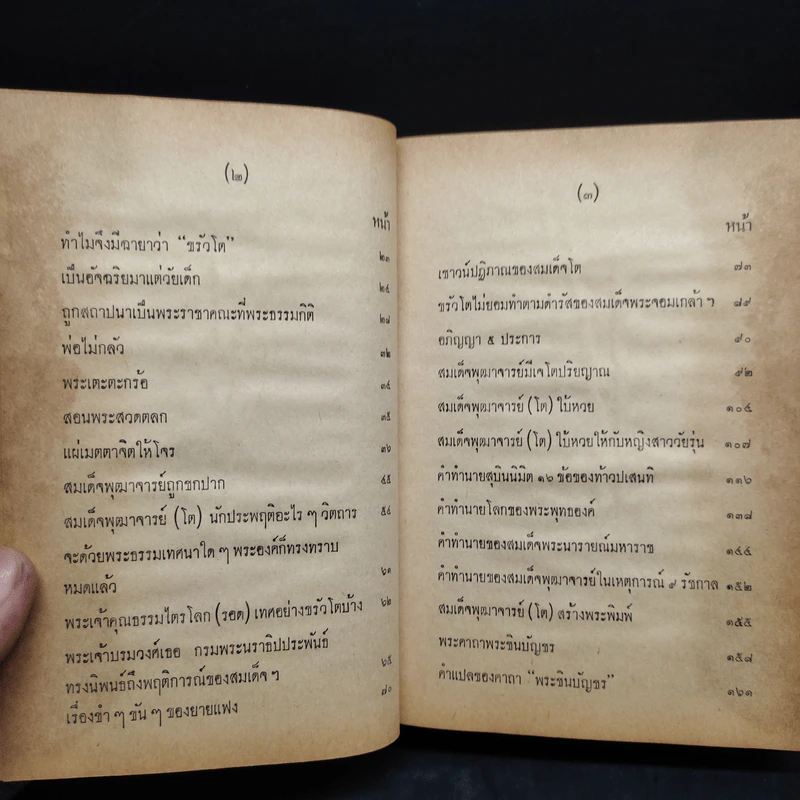 (๒)
หน้า
ทำไมจึงมีฉายาว่า “ขรัวโต” ๒๓
เป็นอัจฉริยมาแต่วัยเด็ก ๒๕
ถูกสถาปนาเป็นพระราชาคณะที่พระธรรมกิติ ๒๘
พ่อไม่กลัว ๓๒
พระเตะตะกร้อ ๓๔
สอนพระสวดตลก ๓๕
แผ่เมตตาจิตให้โจร ๓๖
สมเด็จพุฒาจารย์ถูกชกปาก ๔๕
สมเด็จพุฒาจารย์ (โต) นักประพฤติอะไร ๆ วิตถาร ๕๔
จะด้วยพระธรรมเทศนาใด ๆ พระองค์ก็ทรงทราบ
หมดแล้ว ๖๑
พระเจ้าคุณธรรมไตรโลก (รอด) เทศอย่างขรัวโตบ้าง ๖๒
พระเจ้าบรมวงศ์เธอ กรมพระนราธิปประพันธ์
ทรงนิพนธ์ถึงพฤติการณ์ของสมเด็จ ฯ ๖๕
เรื่องขำ ๆ ขัน ๆ ของยายแฟง ๗๐
(๓)
หน้า
เชาวน์ปฏิภาณของสมเด็จโต ๗๓
ขรัวโตไม่ยอมทำตามดำรัสของสมเด็จพระจอมเกล้า ฯ ๘๙
อภิญญา ๕ ประการ ๙๐
สมเด็จพุฒาจารย์มีเจโตปริยญาณ ๙๒
สมเด็จพุฒาจารย์ (โต) ใบ้หวย ๑๐๔
สมเด็จพุฒาจารย์ (โต) ใบ้หวยให้กับหญิงสาววัยรุ่น ๑๐๗
คำทำนายสุบินนิมิต ๑๖ ข้อของท้าวปเสนทิ ๑๑๖
คำทำนายโลกของพระพุทธองค์ ๑๓๘
คำทำนายของสมเด็จพระนารายณ์มหาราช ๑๔๔
คำทำนายของสมเด็จพุฒาจารย์ในเหตุการณ์ ๙ รัชกาล ๑๕๒
สมเด็จพุฒาจารย์ (โต) สร้างพระพิมพ์ ๑๕๕
พระคาถาพระชินบัญชร ๑๕๘
คำแปลของคาถา “พระชินบัญชร” ๑๖๑